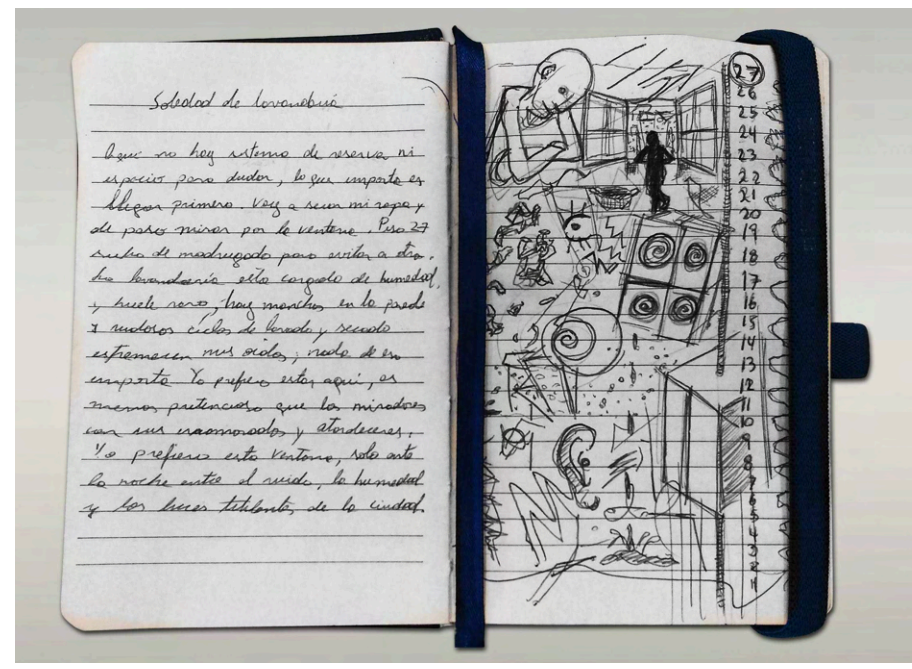 Soledad de lavandería
Aquí no hay sistema de reserva ni
espacio para dudar, lo que importa es
llegar primero. Voy a secar mi ropa y
de paso mirar por la ventana. Piso 27
de madrugada para evitar a otro.
La lavandería esta cargada de humedad,
y huele raro, hay manchas en la pared
y ruidosos ciclos de lavado y secado
estremecen mis oidos; nada de eso
importa. Yo prefiero estar aquí, es
menos pretencioso que los miradores
con sus enamorados y atardeceres.
Yo prefiero esta ventana, solo ante
la noche entre el ruido, la humedad
y las luces titilantes de la ciudad.
27
26
25
24
23
22
21
20
19
18
17
16
15
14
13
12
11
10
9
8
7
6
5
4
3
2
1